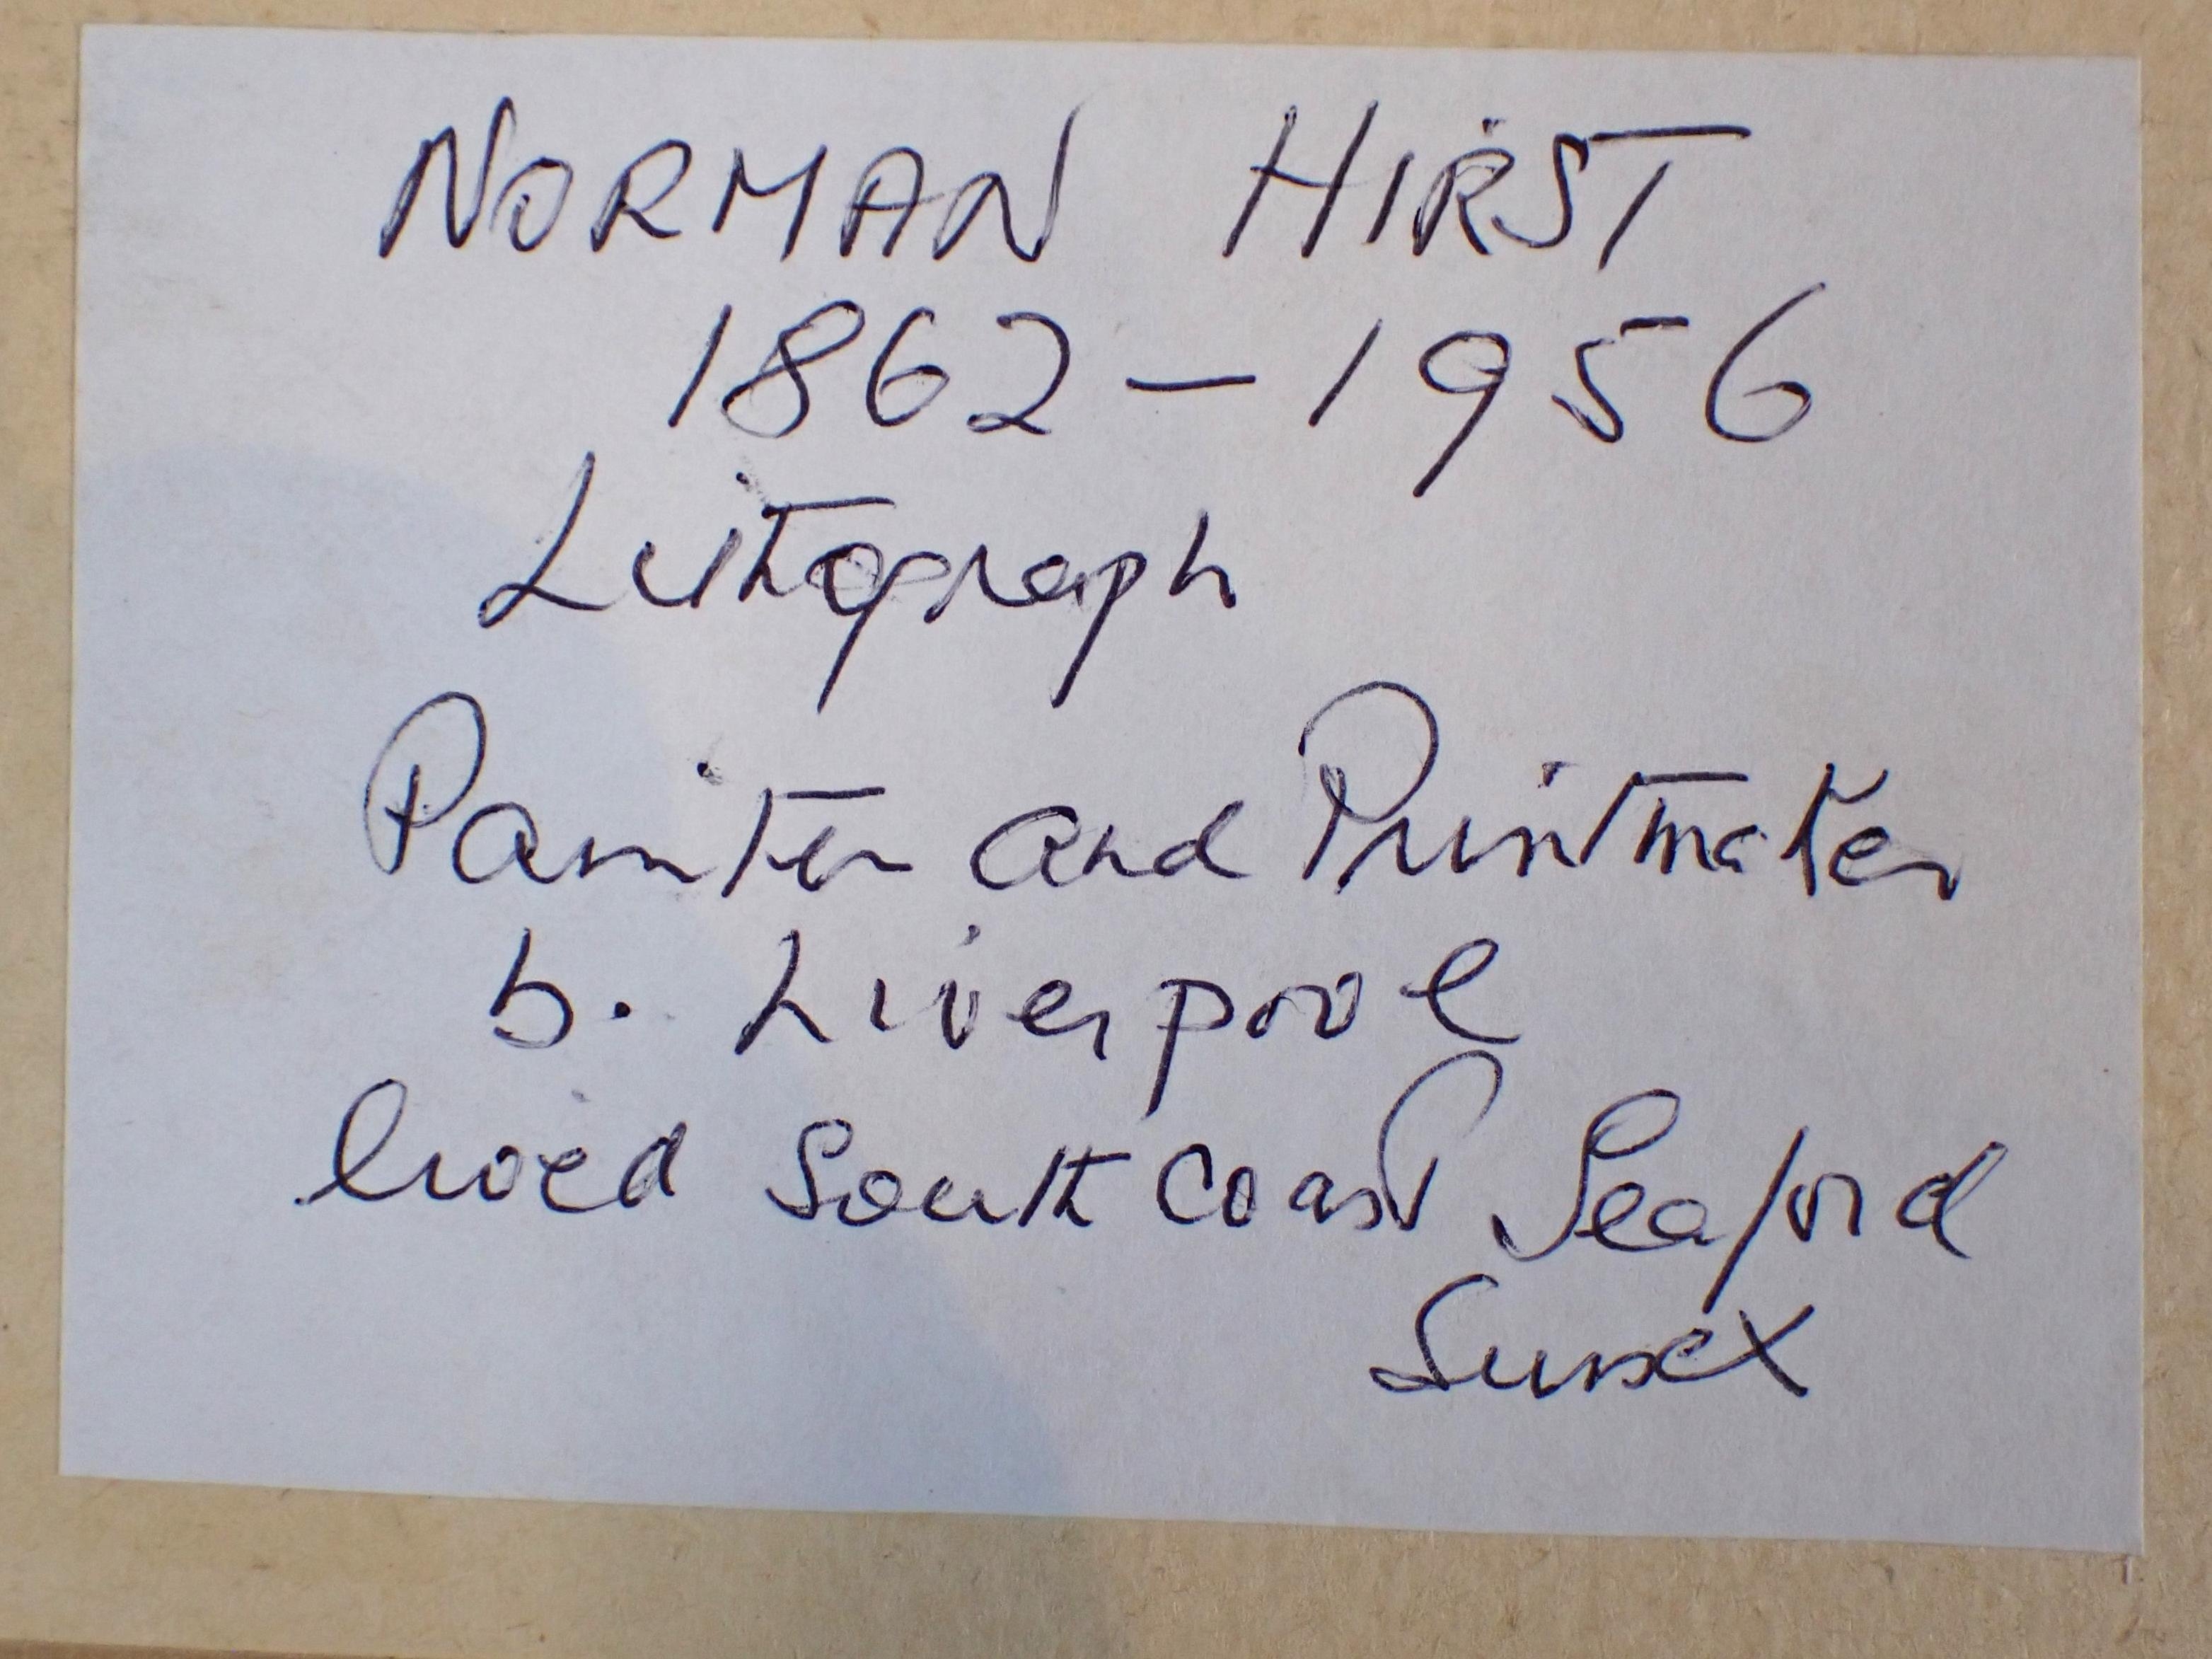 NORMAN HIRST
1862 – 1956
Litograph
Painter and Printmaker
b. Liverpool
lived South Coast Seaford
Sussex